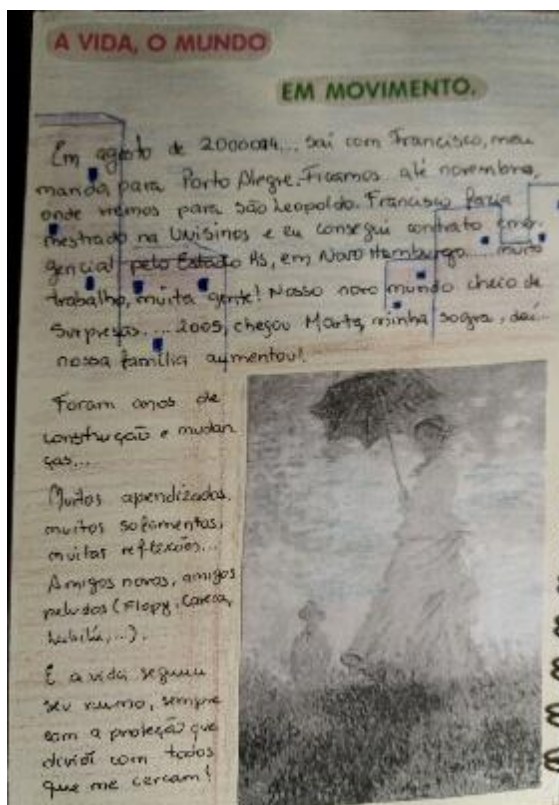 A VIDA, O MUNDO
EM MOVIMENTO.
Em agosto de 2000 ... Saí com Francisco, meu
marido para Porto Alegre. Ficamos até novembro,
onde viemos para São Leopoldo. Francisco fazia
mestrado na Unisinos e eu consegui contrato emer
gencial pelo Estado RS, em Novo Hamburgo..... muito
trabalho, muita gente! Nosso novo mundo cheio de
Surpresas.... 2005, chegou Marta, minha sogra, daí...
nossa família aumentou!
Foram anos de
construção e mudan
ças...
Muitos aprendizados,
muitos sofrimentos,
muitas reflexões...
Amigos novos, amigos
peludos (Flopy,
...).
E a vida seguiu
seu rumo, sempre
com a proteção que
dividi com todos
que me cercam!